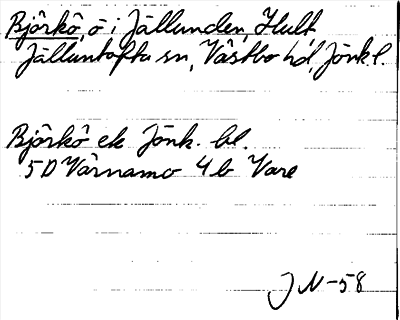 Björkö, ö i Jällunden, Hult
Jälluntofta sn, Västbo hd, Jönk l.
Björkö ek Jönk. bl.
5D Värnamo 4b Vare
J N-58